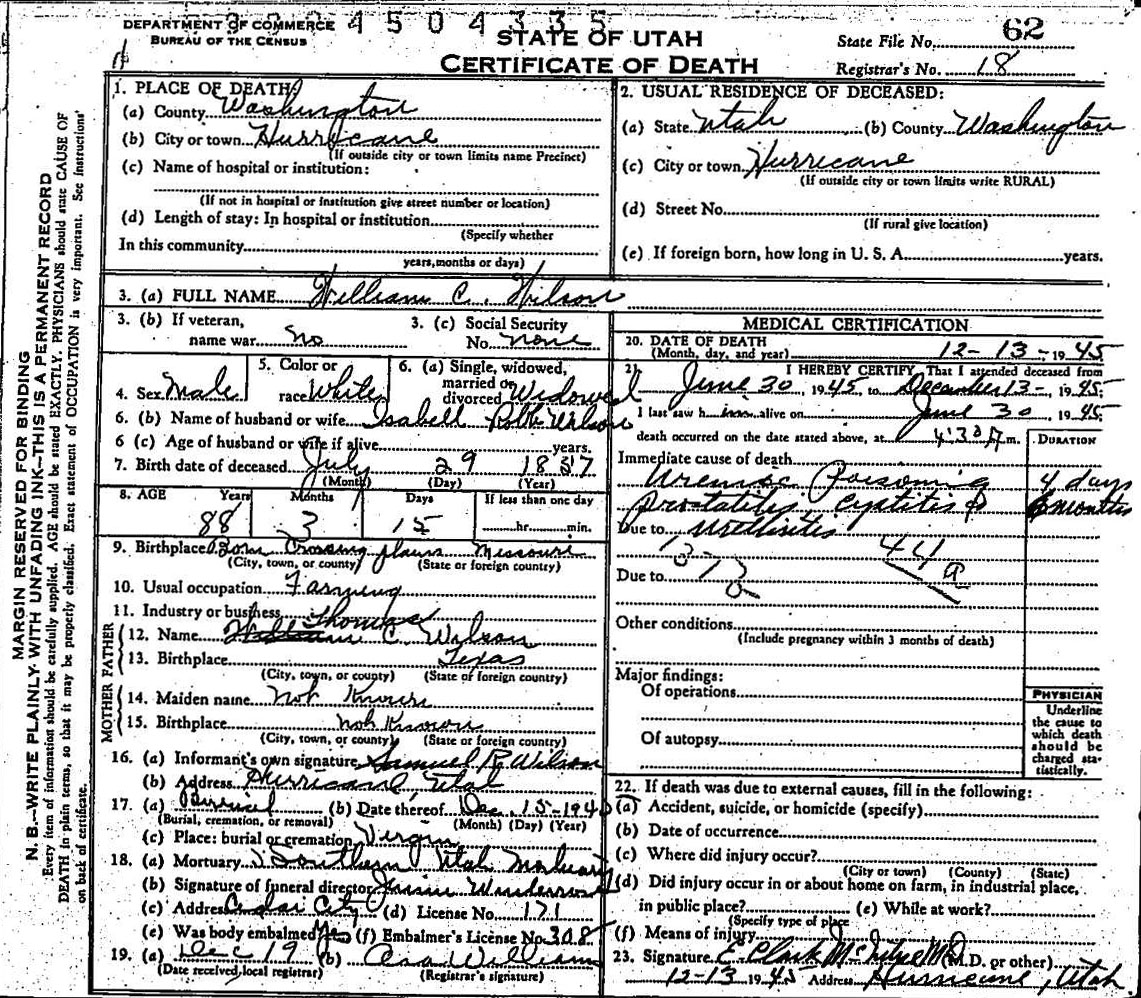 3 2 4 5 0 4 3 3 5
DEPARTMENT OF COMMERCE
BUREAU OF THE CENSUS
STATE OF UTAH
CERTIFICATE OF DEATH
State File No. 62
Registrar's No. 18
MARGIN RESERVED FOR BINDING
N. B.—WRITE PLAINLY WITH UNFADING INK—THIS IS A PERMANENT RECORD
Every item of information should be carefully supplied. AGE should be stated EXACTLY. PHYSICIANS should state CAUSE OF
DEATH in plain terms, so that it may be properly classified. Exact statement of OCCUPATION is very important. See instructions
on back of certificate.
1. PLACE OF DEATH:
(a) County Washington
(b) City or town Hurricane
(If outside city or town limits name Precinct)
(c) Name of hospital or institution:
(If not in hospital or institution give street number or location)
(d) Length of stay: In hospital or institution
(Specify whether
In this community
years, months or days)
2. USUAL RESIDENCE OF DECEASED:
(a) State Utah (b) County Washington
(c) City or town Hurricane
(If outside city or town limits write RURAL)
(d) Street No.
(If rural give location)
(e) If foreign born, how long in U. S. A. years.
3. (a) FULL NAME William C. Wilson
3. (b) If veteran,
name war No
3. (c) Social Security
No. none
4. Sex Male
5. Color or
race White
6. (a) Single, widowed,
married or
divorced Widowed
6. (b) Name of husband or wife Isabell Wilson
6 (c) Age of husband or wife if alive years.
7. Birth date of deceased July 29 1857
(Month) (Day) (Year)
8. AGE Years Months Days If less than one day
88 3 15 hr. min.
9. Birthplace Born Crossing plains Missouri
(City, town, or county) (State or foreign country)
10. Usual occupation Farming
11. Industry or business
FATHER
Thomas
12. Name William C. Wilson
13. Birthplace Texas
(City, town, or county) (State or foreign country)
MOTHER
14. Maiden name Not Known
15. Birthplace Not Known
(City, town, or county) (State or foreign country)
16. (a) Informant's own signature Samuel R. Wilson
(b) Address Hurricane, Utah
17. (a) Burial (b) Date thereof Dec. 15-1945
(Burial, cremation, or removal) (Month) (Day) (Year)
(c) Place: burial or cremation Virgin
18. (a) Mortuary Southern Utah Mortuary
(b) Signature of funeral director
(c) Address Cedar City (d) License No. 171
(e) Was body embalmed Yes (f) Embalmer's License No. 308
19. (a) Dec 19 (b) Williams
(Date received local registrar) (Registrar's signature)
MEDICAL CERTIFICATION
20. DATE OF DEATH
(Month, day, and year) 12-13-1945
21. I HEREBY CERTIFY, That I attended deceased from
June 30, 1945, to December 13-, 1945.
I last saw him alive on June 30, 1945
death occurred on the date stated above, at 4:30 A m.
DURATION
Immediate cause of death
Uremic Poisoning 4 days
Prostatitis, Cystitis & 6 months
Due to Urethritis
Due to
Other conditions
(Include pregnancy within 3 months of death)
Major findings:
Of operations
Of autopsy
PHYSICIAN
Underline
the cause to
which death
should be
charged sta-
tistically.
22. If death was due to external causes, fill in the following:
(a) Accident, suicide, or homicide (specify)
(b) Date of occurrence
(c) Where did injury occur?
(City or town) (County) (State)
(d) Did injury occur in or about home on farm, in industrial place,
in public place? (e) While at work?
(Specify type of place
(f) Means of injury
23. Signature E. Clark McIntire M.D. (M.D. or other)
12-13 1945 Address Hurricane, Utah